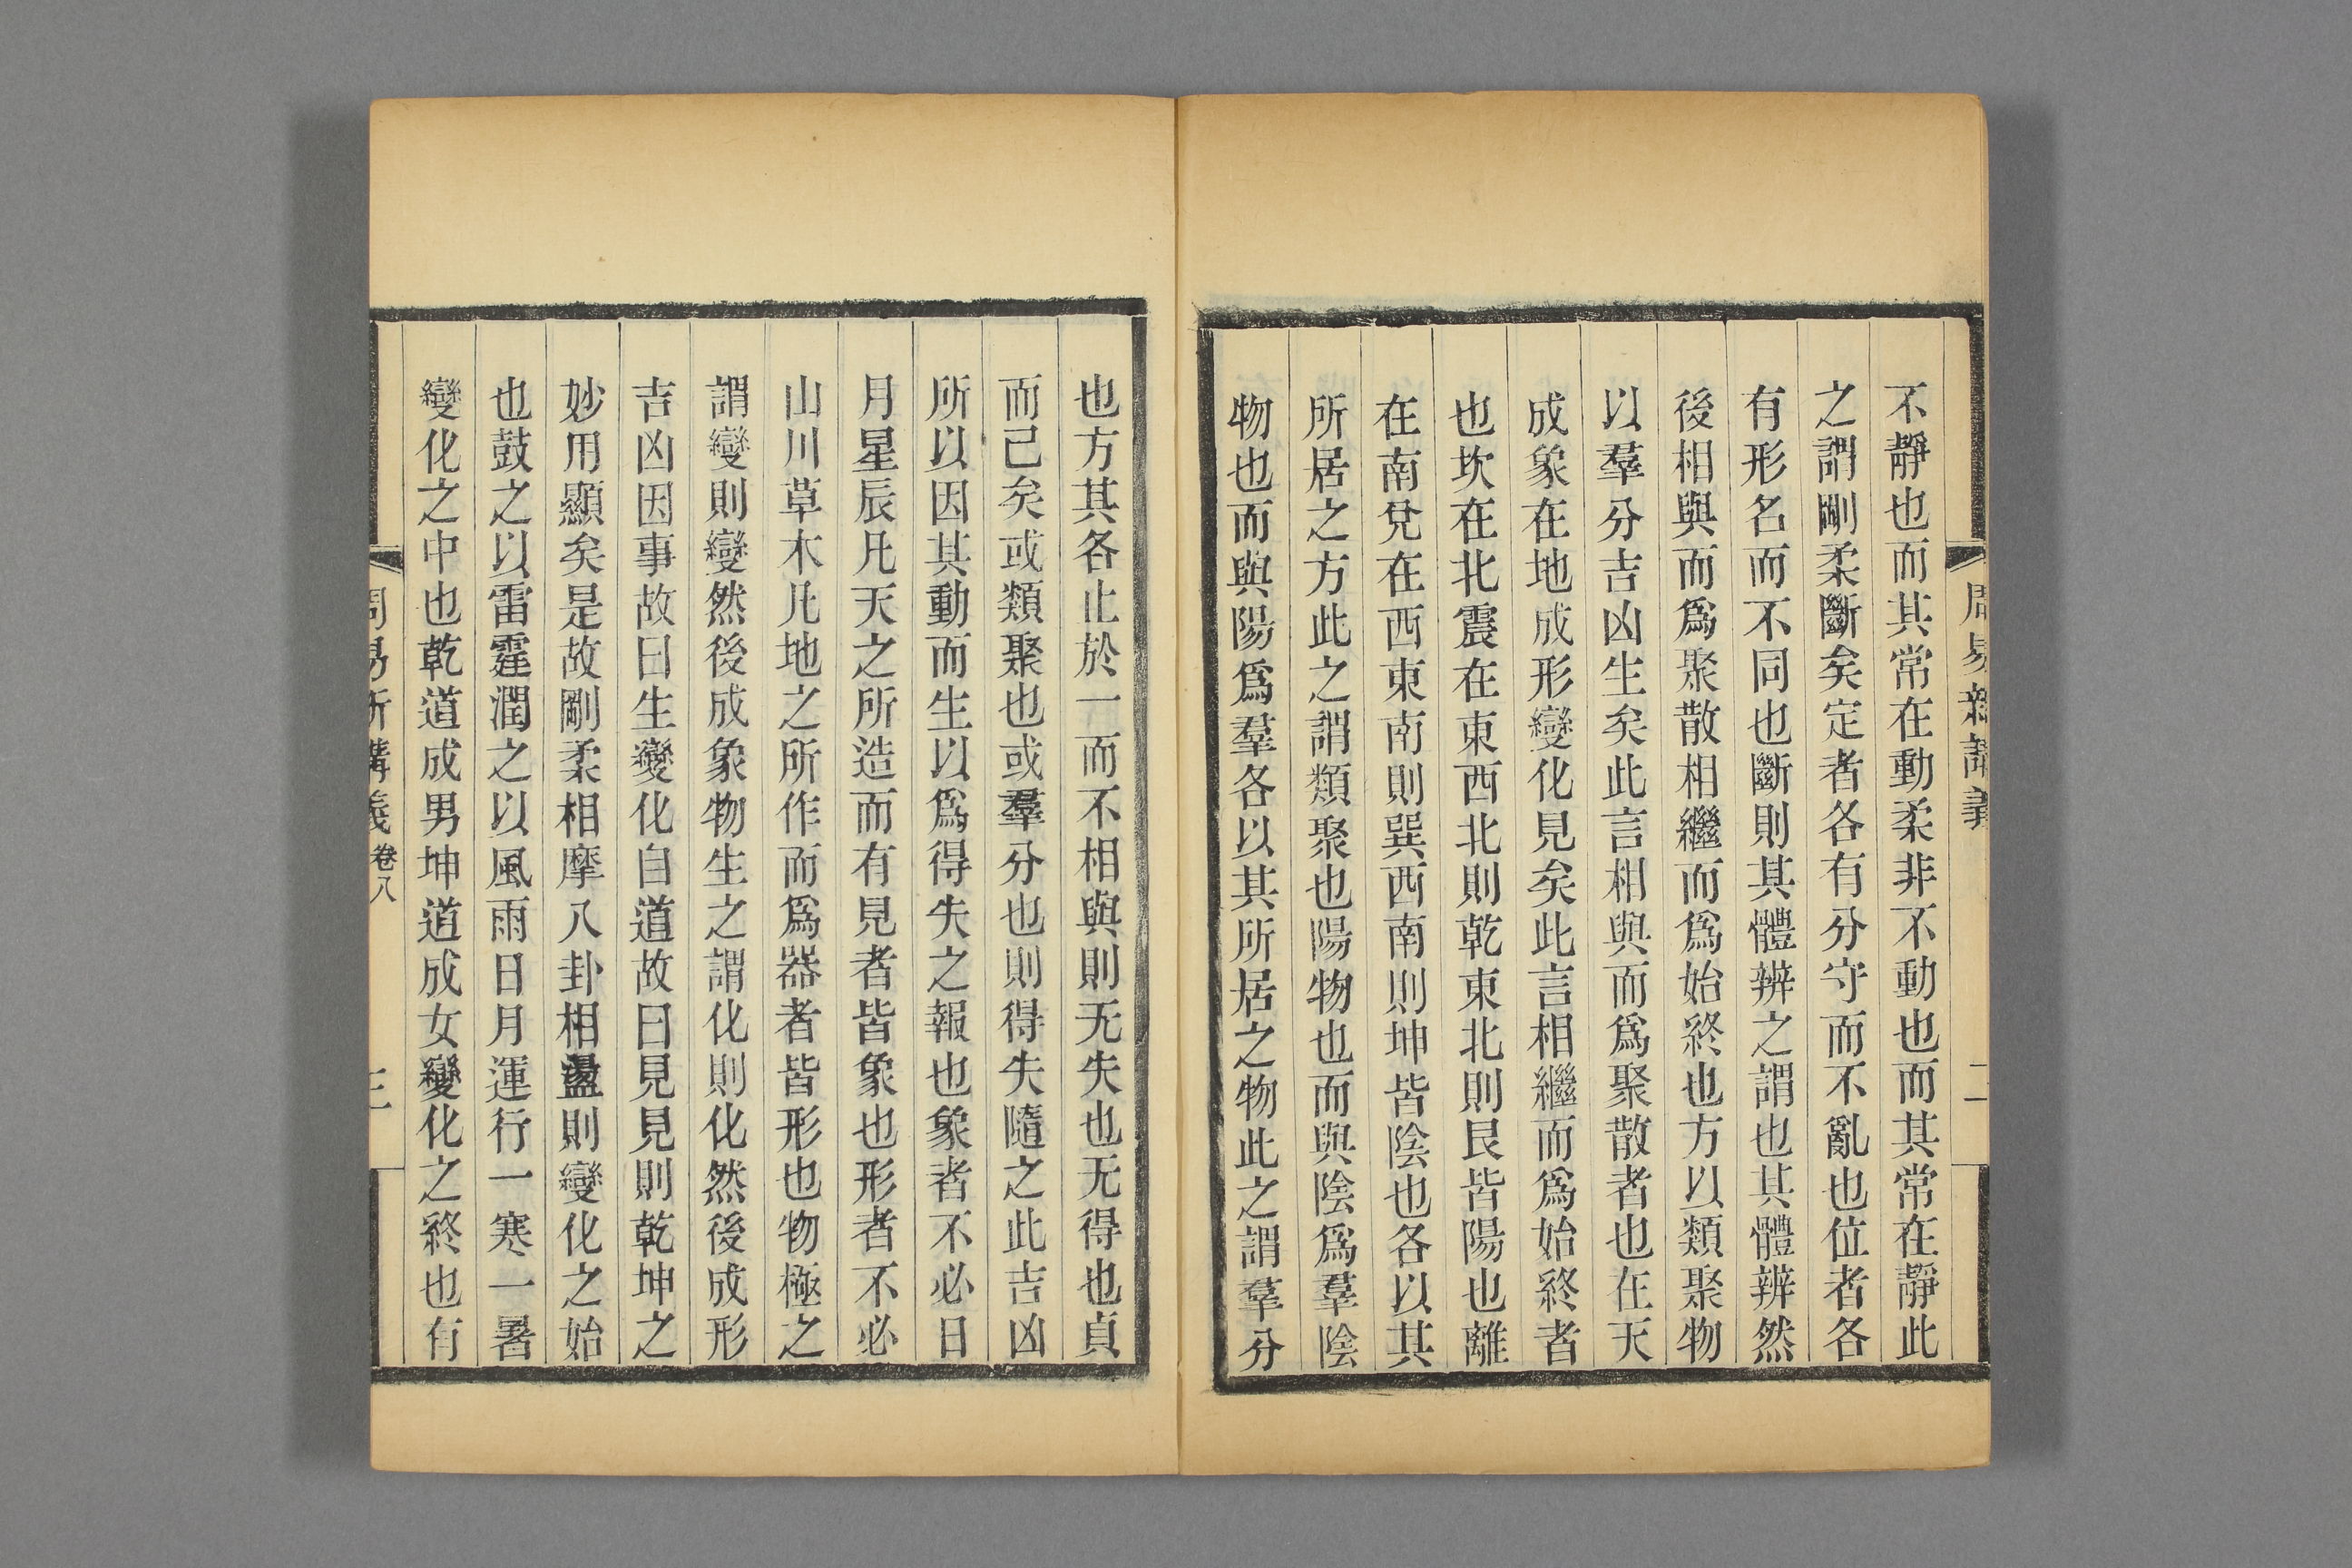 周易新講義
二
不靜也而其常在動柔非不動也而其常在靜此
之謂剛柔斷矣定者各有分守而不亂也位者各
有形名而不同也斷則其體辨之謂也其體辨然
後相與而爲聚散相繼而爲始終也方以類聚物
以羣分吉凶生矣此言相與而爲聚散者也在天
成象在地成形變化見矣此言相繼而爲始終者
也坎在北震在東西北則乾東北則艮皆陽也離
在南兌在西東南則巽西南則坤皆陰也各以其
所居之方此之謂類聚也陽物也而與陰爲羣陰
物也而與陽爲羣各以其所居之物此之謂羣分
也方其各止於一而不相與則无失也无得也貞
而已矣或類聚也或羣分也則得失隨之此吉凶
所以因其動而生以爲得失之報也象者不必日
月星辰凡天之所造而有見者皆象也形者不必
山川草木凡地之所作而爲器者皆形也物極之
謂變則變然後成象物生之謂化則化然後成形
吉凶因事故曰生變化自道故曰見見則乾坤之
妙用顯矣是故剛柔相摩八卦相盪則變化之始
也鼓之以雷霆潤之以風雨日月運行一寒一暑
變化之中也乾道成男坤道成女變化之終也有
周易新講義 卷八
三